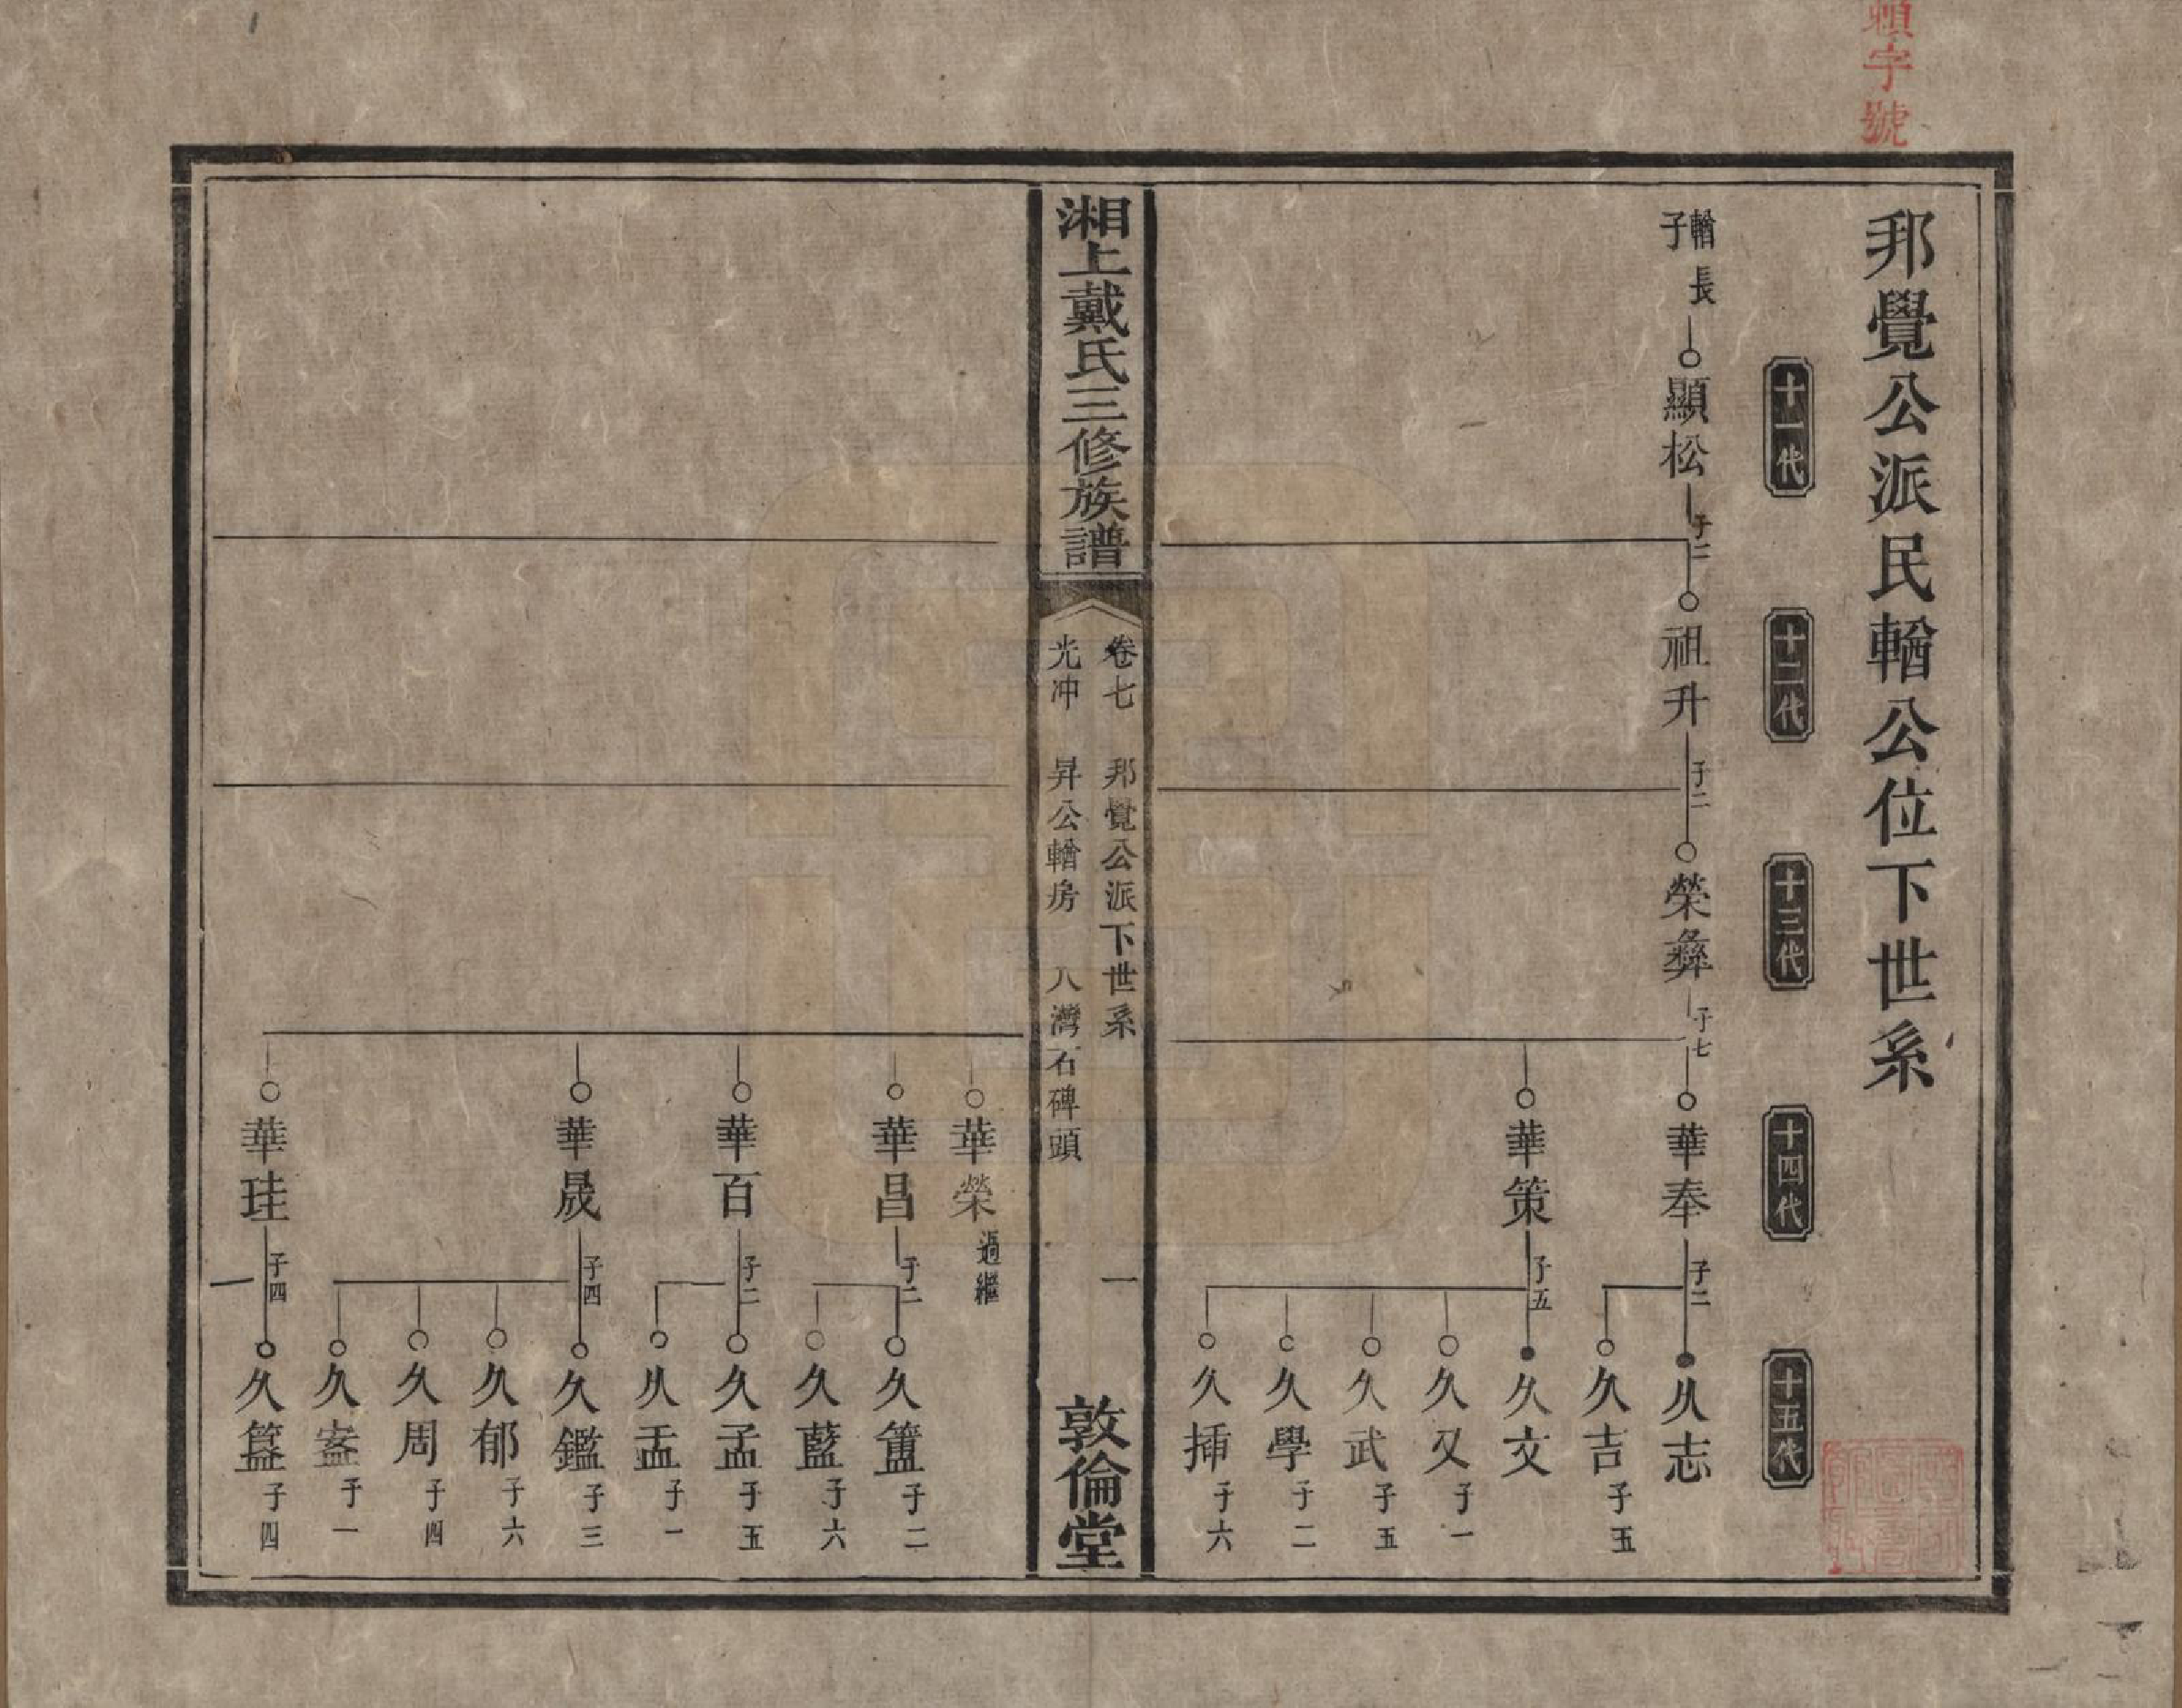 賴字號
邦覺公派民輶公位下世系
十一代
十二代
十三代
十四代
十五代
輶長
子
顯松
子二
祖升
子二
榮彝
子七
華奉
子二
久志
久吉
子五
華策
子五
久文
久又
子一
久武
子五
久學
子二
久插
子六
湘上戴氏三修族譜
卷七 邦覺公派下世系
光冲 昇公輶房 八灣石碑頭
一
敦倫堂
華榮
過繼
華昌
子二
久簠
子二
久藍
子六
華百
子二
久孟
子五
久盂
子一
華晟
子四
久鑑
子三
久郁
子六
久周
子四
久盡
子一
華珪
子四
久簋
子四